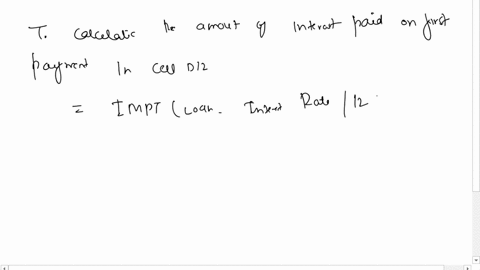 T. calculate the amout of interest paid on first
payment In cell D12
= IMPT ( Loan. Interest Rate / 12